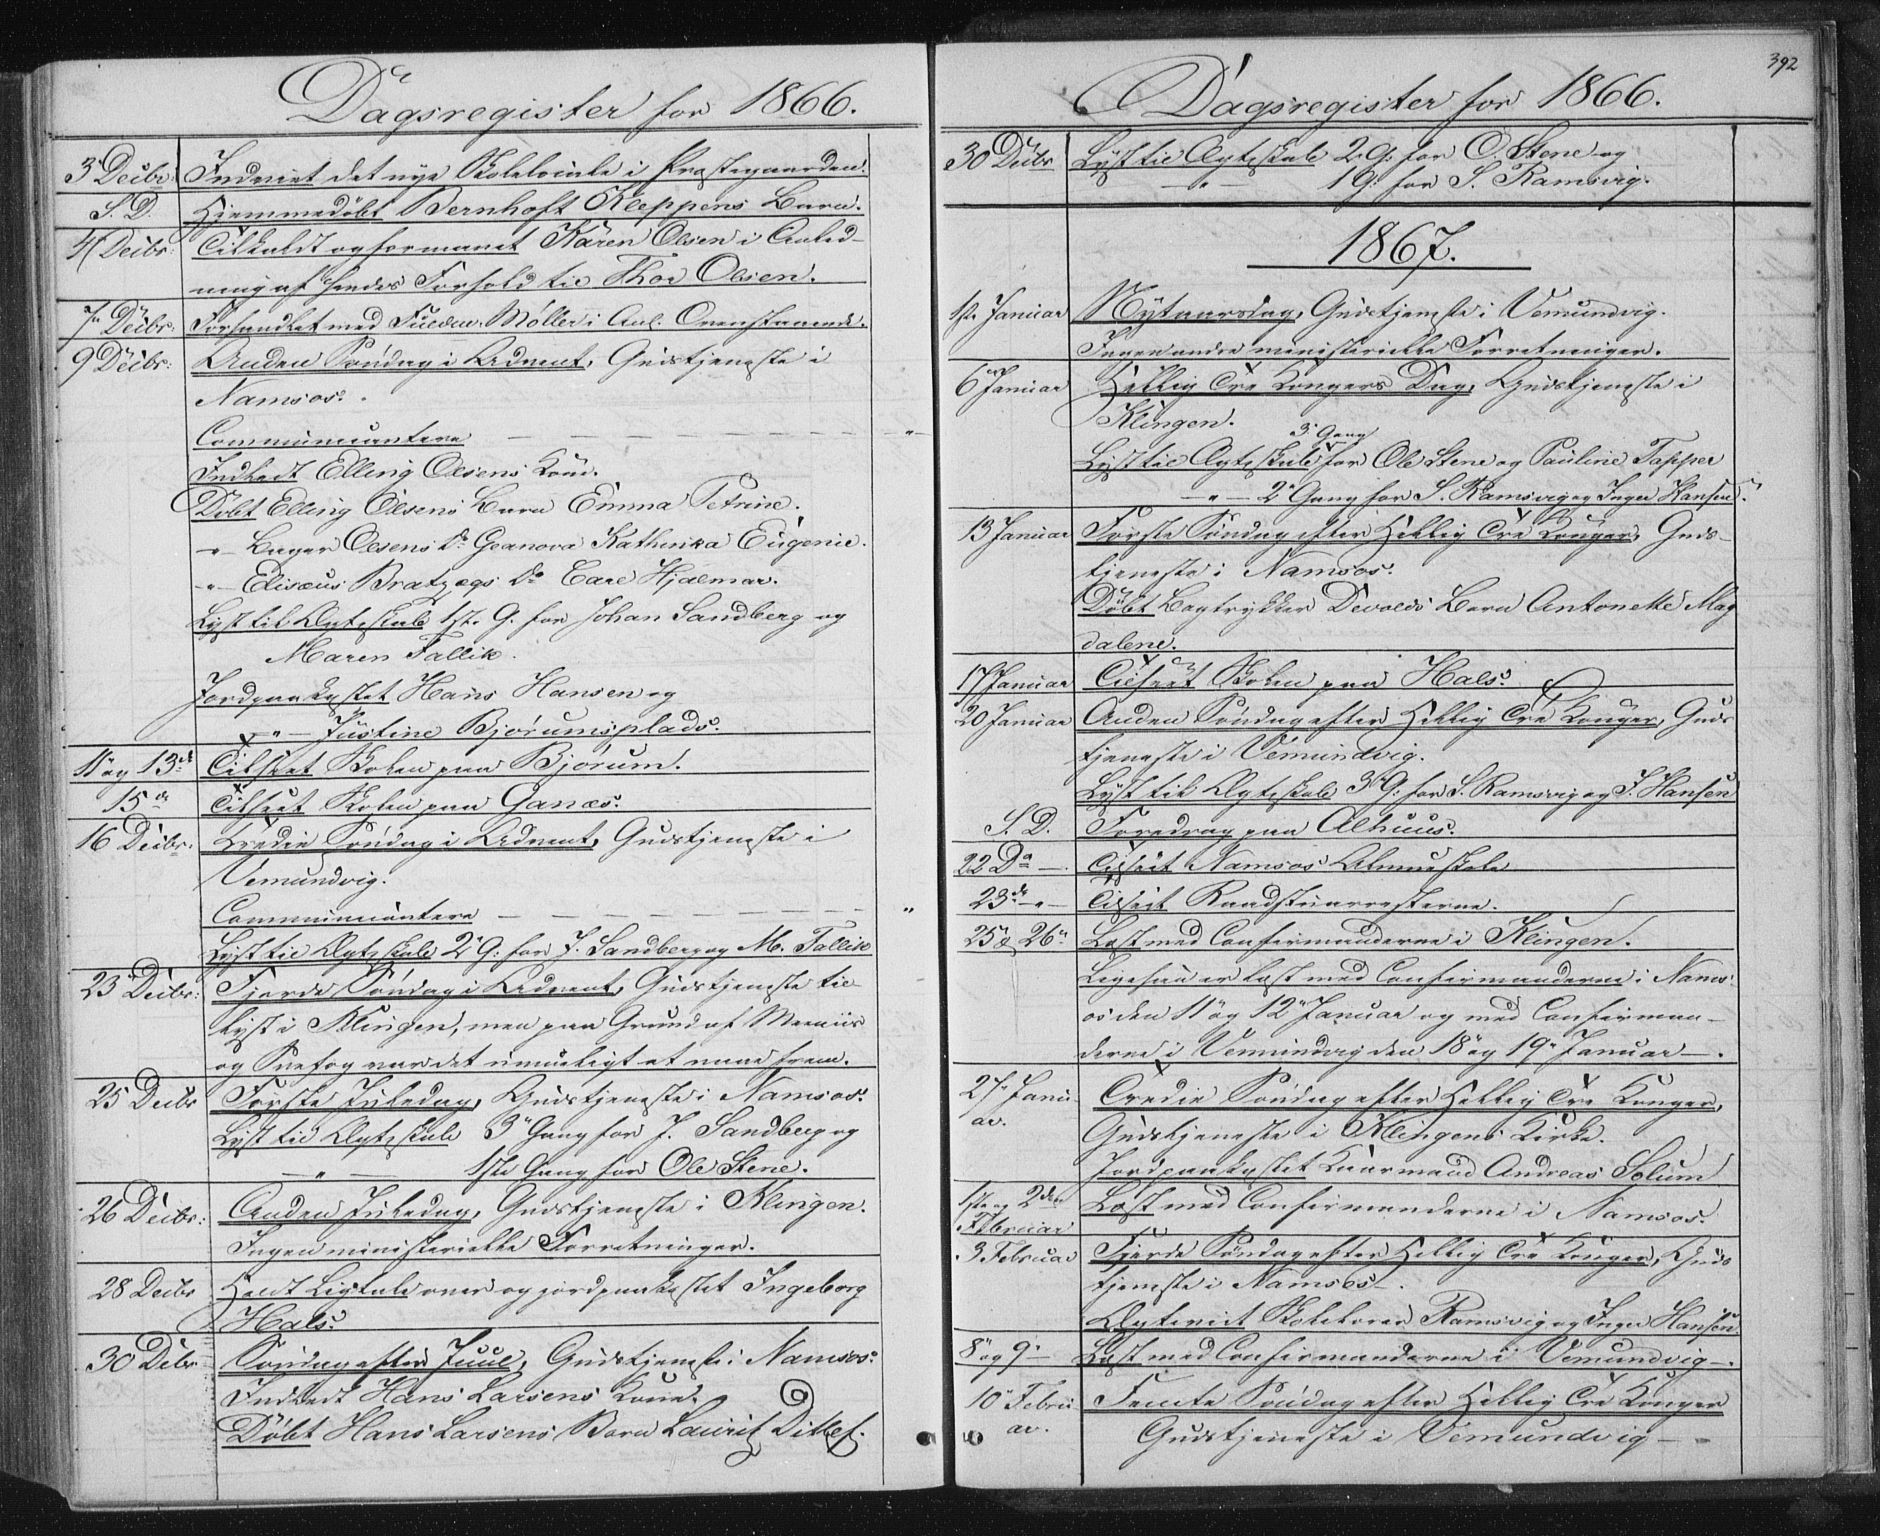 Dagsregister for 1866.
3 Decbr: Indviet det nye Skolelocale i Præstegaarden.
S. D. Hjemmedøbt Bernhoft Kleppens Barn.
4 Decbr: Tilkaldt og formanet Karen Olsen i Anled-
ning af hendes Forhold til Thor Olsen.
7de Decbr: Forhandlet med Møller i Anl. Ovenstaaende.
9 Decbr: Anden Søndag i Advent, Gudstjeneste i
Namsos.
Communicantere — — — "
Indledt Elling Olsens Kone.
Døbt Elling Olsens Barn Emma Petrine.
-"- Olsens Do Geanova Kathinka Eugenie.
-"- Elisæus Bratzegs Do Carl Hjalmar.
Lyst til Ægteskab 1ste G. for Johan Sandberg og
Maren Fallik.
Jordpaakastet Hans Hansen og
-"- Justine Bjørumsplads.
11 og 13de Tilseet Skolen paa Bjørum.
15de Tilseet Skolen paa Ganæs.
16 Decbr: Tredie Søndag i Advent, Gudstjeneste i
Vemundvig.
Communicantere — — — "
Lyst til Ægteskab 2 G: for J. Sandberg og M. Fallik
23 Decbr: Fjerde Søndag i Advent, Gudstjeneste til-
lyst i Klingen, men paa Grund af
og Snefog var det umueligt at naae frem.
25 Decbr Første Juledag, Gudstjeneste i Namsos.
Lyst til Ægteskab 3 Gang for J. Sandberg og
-"- 1ste Gang for Ole Stene.
26 Decbr: Anden Juledag, Gudstjeneste i Klingen.
Ingen ministerielle Forretninger.
28 Decbr Holdt Ligtale over og jordpaakastet Ingeborg
Hals.
30 Debr Søndag efter Juul, Gudstjeneste i Namsos.
Indledt Hans Larsens Kone.
Døbt Hans Larsens Barn Lauritz Ditlef.
392
Dagsregister for 1866.
30 Decbr Lyst til Ægteskab 2 G: for O Stene og
-"- 1 G: for S. Ramsvig.
1867.
1ste Januar Nytaarsdag, Gudstjeneste i Vemundvig.
Ingen andre ministerielle Forretninger.
6 Januar Hellig Tre Kongers Dag, Gudstjeneste i
Klingen.
3 Gang
Lyst til Ægteskab for Ole Stene og Pauline Tapper
-"- 2 Gang for S. Ramsvig og Inger Hansen.
13 Januar Første Søndag efter Hellig Tre Konger, Guds-
tjeneste i Namsos.
Døbt Bogtrykker Devolds Barn Antonette Mag
dalene.
17 Januar Tilseet Skolen paa Hals.
20 Januar Anden Søndag efter Hellig Tre Konger, Guds
tjeneste i Vemundvig.
Lyst til Ægteskab 3 G: for S. Ramsvig og I. Hansen
S. D. Foredrag paa Alhuus.
22 Do — Tilseet Namsos Almueskole
23de -"- Tilseet Raadstuarresterne.
25 & 26 Læst med Confirmanderne i Klingen.
Ligesaa er læst med Confirmanderne i Nams-
os den 11 og 12 Januar og med Confirman-
derne i Vemundvig den 18 og 19 Januar —.
27 Janu- Tredie Søndag efter Hellig Tre Konger,
ar. Gudstjeneste i Klingens Kirke.
Jordpaakastet Kaarmand Andreas Solum
1ste og 2den Læst med Confirmanderne i Namsos.
Februar
3 Februar Fjerde Søndag efter Hellig Tre Konger, Guds
tjeneste i Namsos —.
Ægteviet Skolelærer Ramsvig og Inger Hansen.
8 og 9 — Læst med Confirmanderne i Vemundvig —.
10 Febru Femte Søndag efter Hellig Tre Konger
ar. Gudstjeneste i Vemundvig —